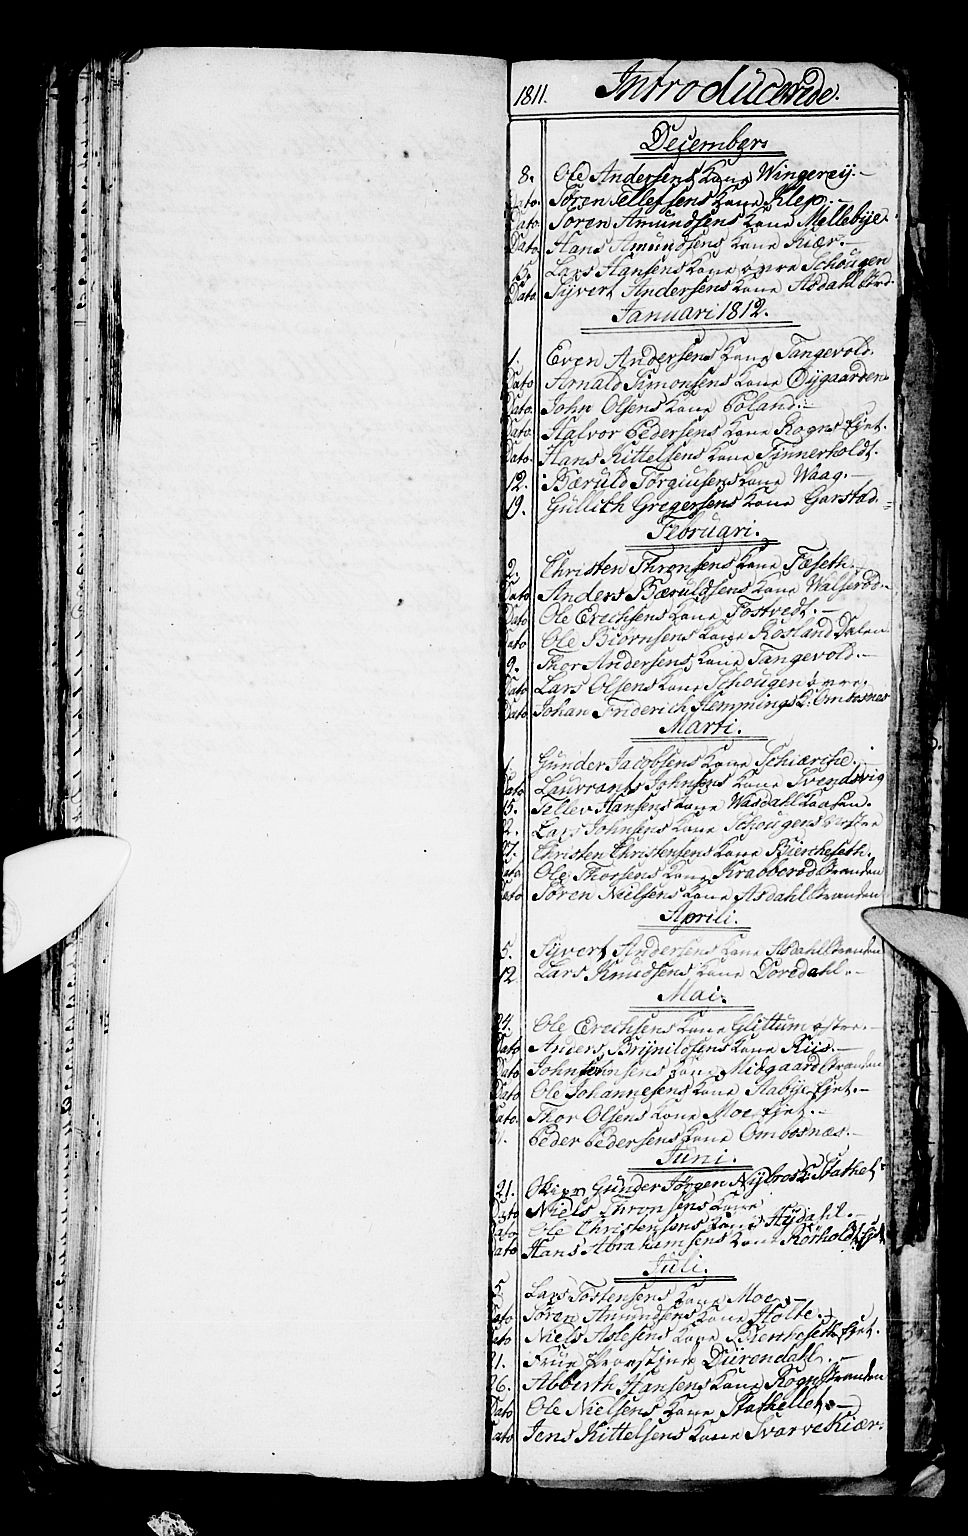 1811. Introducerede.
December.
8. Ole Andersens Kone Wingereij.
Dato. Søren Tellefsens Kone Klep.
Dato. Søren Amundsens Kone Møllebÿe.
Dato Hans Amundsens Kone Kiær.
15. Lars Hansens Kone øvre Schougen
Dato. Sÿvert Andersens Kone Aasdahl Strd.
Januari 1812.
1. Even Andersens Kone Tangevold.
Dato Arnald Simonsens Kone Øÿgaarden
Dato. John Olsens Kone Eoland.
Dato. Halvor Pedersens Kone Rogns Ejet.
Dato. Hans Kittelsens Kone Tinnerholdt.
12. Bæruld Torgiusens Kone Waag.
19. Gullith Gregersens Kone Garstad.
Februari.
2. Christen Thronsens Kone Fæseth.
Dato Anders Bæruldsens Kone Walserød.
Dato Ole Erichsens Kone Tostvedt.
Dato Ole Biørnsens Kone Rosland Dalen
9. Thor Andersens Kone Tangevold.
Dato Lars Olsens Kone Schougen øvre.
Dato. Johan Friderich Flemmings K: Ombosnæs
Marti.
Gunder Jacobsens Kone Schiærche.
Dato Lauvrants Johnsens Kone Svendsvig
15. Tellev Hansens Kone Wasdahl Kaasen.
22. Lars Johnsens Kone Schougens østre
27. Christen Christensens Kone Biercheseth.
Dato Ole Thorsens Kone Krabberød Stranden
Dato Søren Nielsens Kone Aasdahl Stranden
Aprili.
5. Sÿvert Andersens Kone Aasdahl Stranden
12 Lars Knudsens Kone Doredahl.
Mai.
24. Ole Erichsens Kone Glittum østre.
Dato Anders Brÿnildsens Kone Riis.
Dato John Johnsens Kone Midgaard Stranden
Dato Ole Johannesens Kone Stabÿe Ejet.
Dato. Thor Olsens Kone Moe Ejet.
Peder Pedersens Kone Ombosnæs.
Juni.
21. Skipr. Gunder Jørgen Nÿbros K: Stathel
Dato Niels Thronsens Kone
Dato Ole Christensens Kone Hÿdahl.
Dato Hans Abrahamsens Kone Rørholdt Ejet
Juli.
5 Lars Tostensens Kone Moe.
Dato Søren Amundsens Kone Holte.
Dato Niels Aslesens Kone Bierchseth Ejet.
Frue Provstinde Dürendahl.
26. Abberth Hansens Kone Rogn Stranden
Dato Ole Nielsens Kone Stathellet.
Dato Jens Kittelsens Kone Tvarve Kiær.